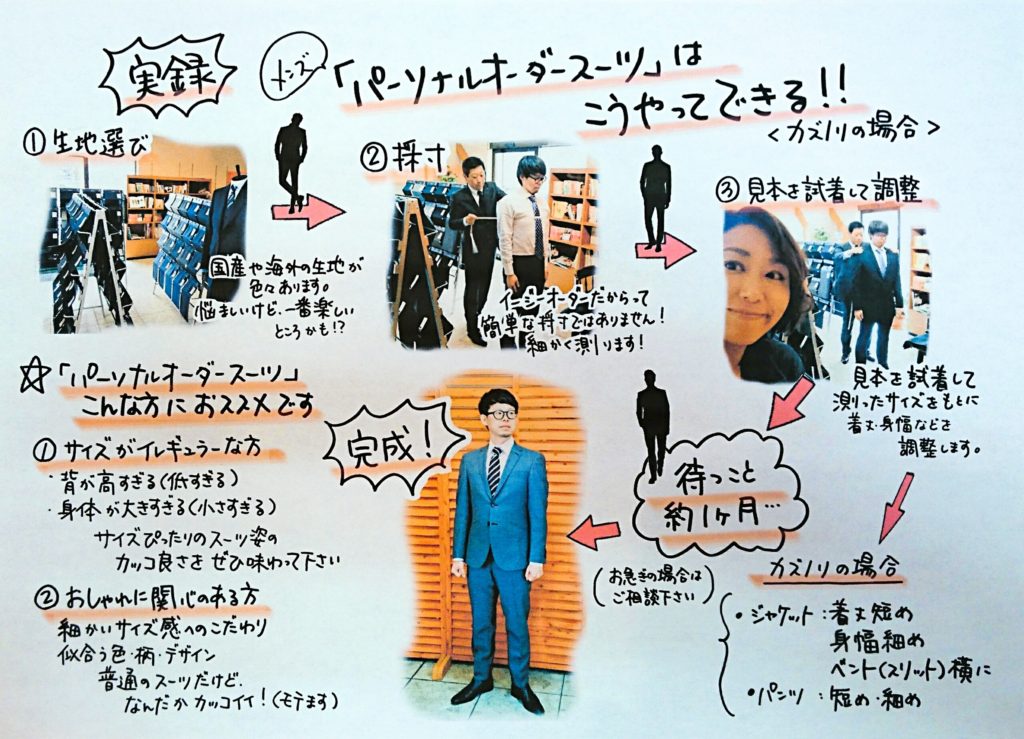 実録
メンズ
「パーソナルオーダースーツ」は
こうやってできる!!
<カズノリの場合>
①生地選び
国産や海外の生地が
色々あります。
悩ましいけど、一番楽しい
ところかも!?
②採寸
イージーオーダーだからって
簡単な採寸ではありません!
細かく測ります!
③見本を試着して調整
見本を試着して
測ったサイズをもとに
着丈・身幅などを
調整します。
カズノリの場合
・ジャケット:着丈短め
身幅細め
ベント(スリット)横に
・パンツ:短め・細め
待つこと
約1ヶ月…
(お急ぎの場合は
ご相談下さい)
完成!
☆「パーソナルオーダースーツ」
こんな方におススメです
①サイズがイレギュラーな方
・背が高すぎる(低すぎる)
・身体が大きすぎる(小さすぎる)
サイズぴったりのスーツ姿の
カッコ良さをぜひ味わって下さい
②おしゃれに関心のある方
細かいサイズ感へのこだわり
似合う色・柄・デザイン
普通のスーツだけど、
なんだかカッコイイ!(モテます)